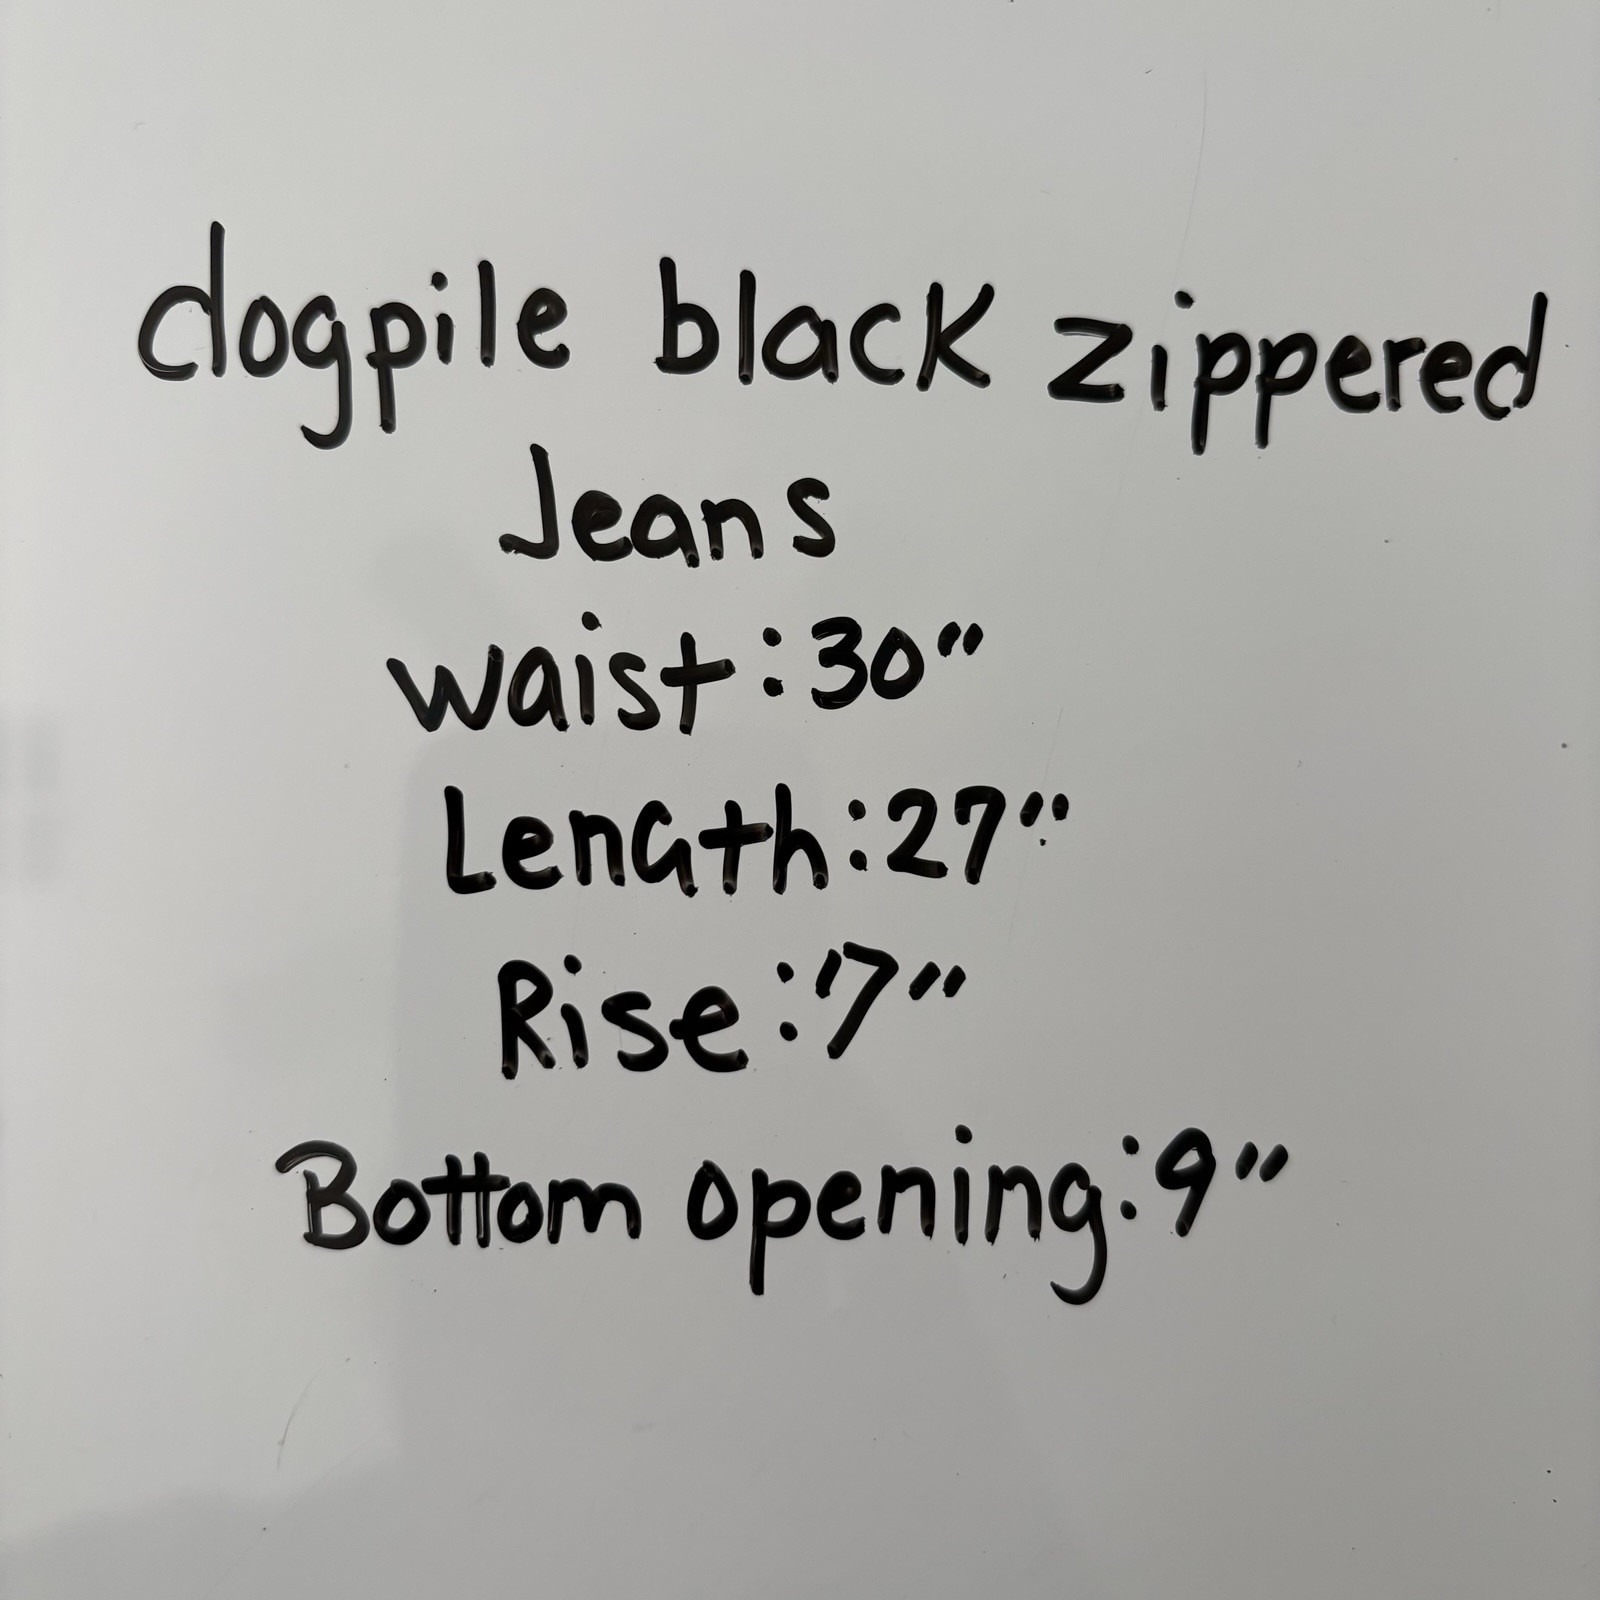 dogpile black zippered
Jeans
waist:30"
Length:27"
Rise:7"
Bottom opening:9"